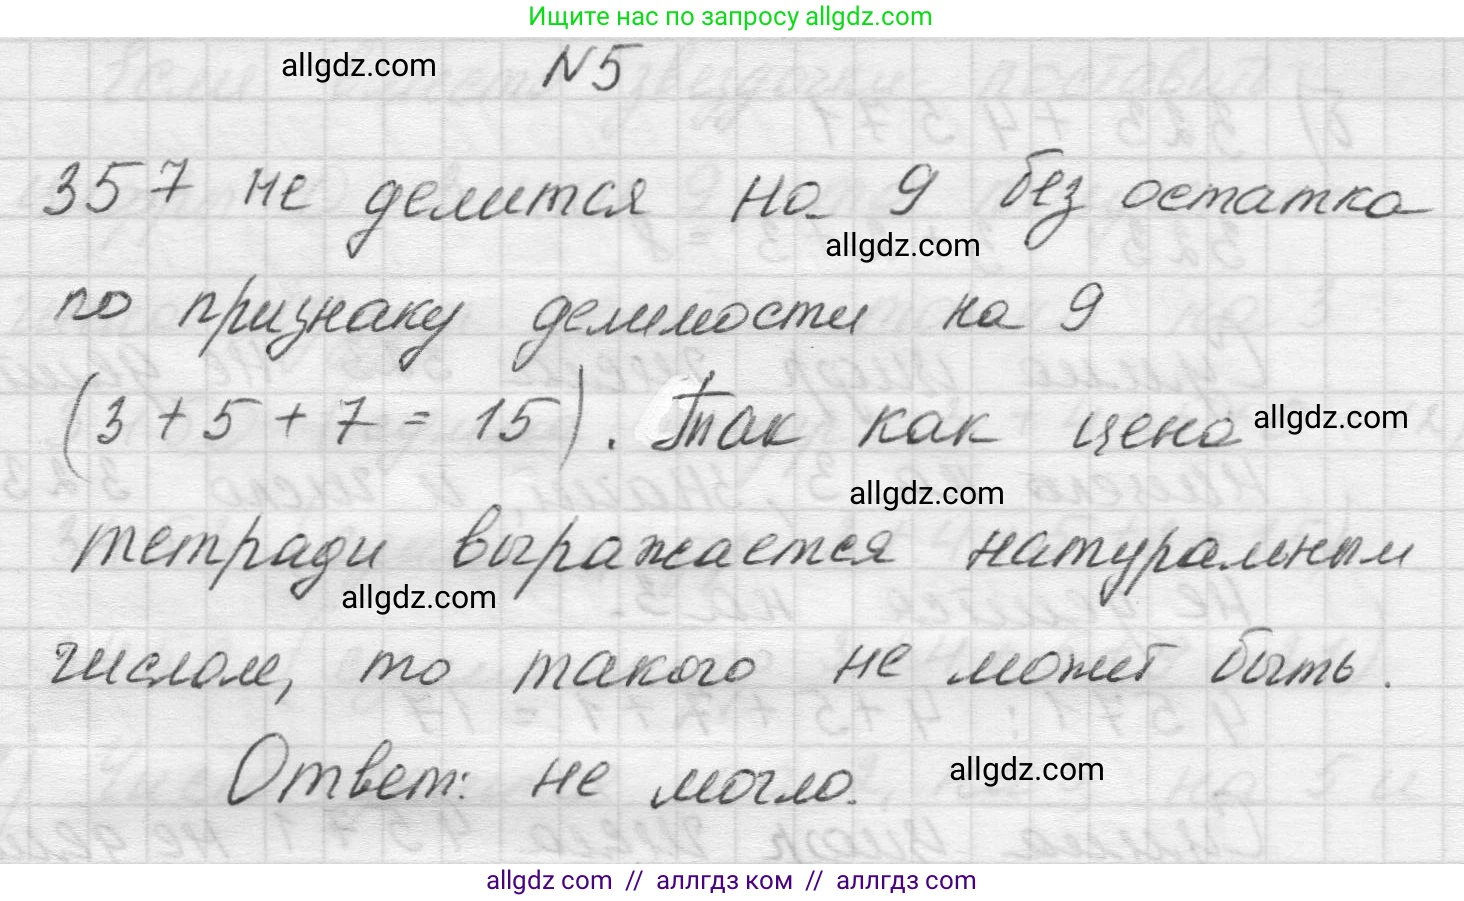 Ищите нас по запросу allgdz.com
allgdz.com
N5
357 не делится на 9 без остатка
allgdz.com
по признаку делимости на 9
(3+5+7=15). Так как цена
allgdz.com
allgdz.com
тетради выражается натуральным
allgdz.com
числом, то такого не может быть.
Ответ: не могло.
allgdz.com
allgdz com // аллгдз ком // аллгдз com